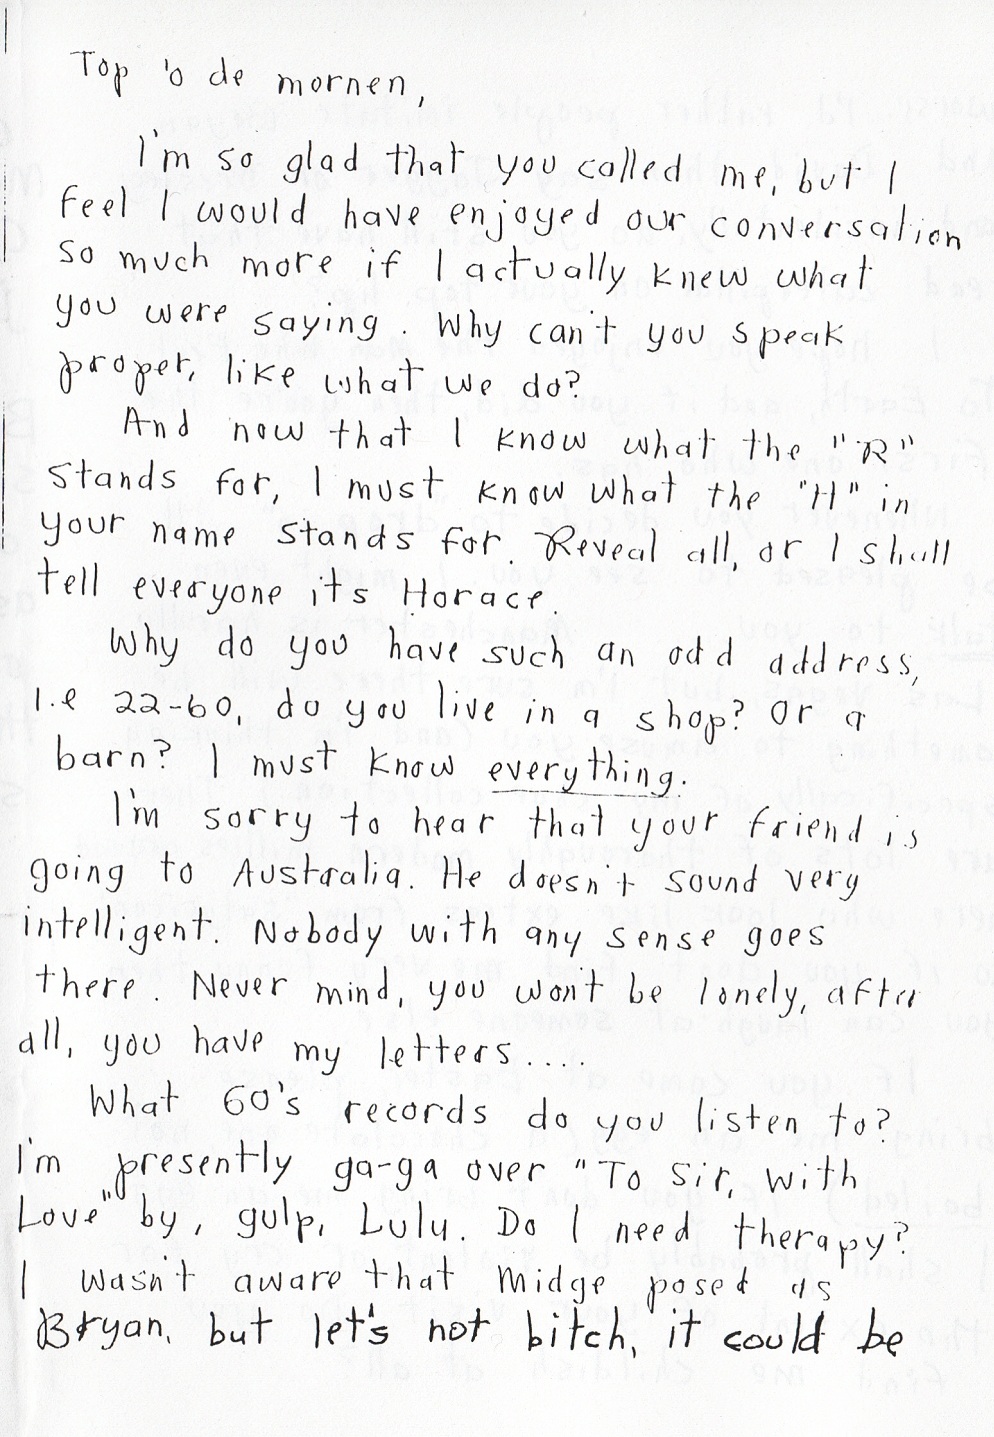 Top 'o de mornen,
I'm so glad that you called me, but I
feel I would have enjoyed our conversation
so much more if I actually knew what
you were saying. Why can't you speak
proper, like what we do?
And now that I know what the "R"
stands for, I must know what the "H" in
your name stands for. Reveal all, or I shall
tell everyone it's Horace.
Why do you have such an odd address,
I.e 22-60, do you live in a shop? Or a
barn? I must know everything.
I'm sorry to hear that your friend is
going to Australia. He doesn't sound very
intelligent. Nobody with any sense goes
there. Never mind, you won't be lonely, after
all, you have my letters....
What 60's records do you listen to?
I'm presently ga-ga over "To Sir, With
Love" by, gulp, Lulu. Do I need therapy?
I wasn't aware that Midge posed as
Bryan, but let's not bitch, it could be